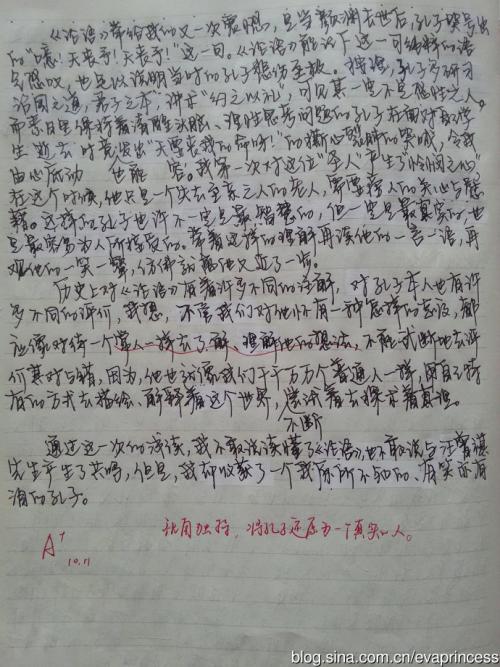 《论语》带给我的又一次震撼，是当颜渊去世后，孔子哭号出
的"噫！天丧予！天丧予！"这一句。《论语》能记下这一句
也是以说明当时的孔子悲伤至极。孔子多研习
治国之道，君子之本；讲求"约之以礼"，可见其一定不是感性之人。
而素日里保持着清醒头脑、理性思考问题的孔子在面对自己学
生逝去时竟突出"天要丧我的命呀！"的撕心裂肺的哭喊，令我
由心而动 也能 容。我第一次对这位"圣人"产生了"怜悯之心"
在这个时候，他只是一个失去至亲之人的老人，需要择人的关心与慰
藉。这样的孔子也许不一定是最智慧的，但一定是最真实的，也
是最容易为人所接受的。带着这样的理解再读他的一言一语，再
观他的一笑一颦，仿佛距离他又近了一步。
历史上对《论语》有着许多不同的注解，对孔子本人也有许
多不同的评价，我想，不管我们对他怀有一种怎样的态度，都
应像对待一个常人一样去了解、理解他的想法，不能武断地去评
价其对与错，因为，他也许像我们千千万万个普通人一样，用自己特
有的方式去描绘、解释着这个世界，尝试着去探求着真理。
不断
通过这一次的浅读，我不敢说读懂了《论语》，也不敢说与注着读
先生产生了共鸣，但是，我却收获了一个我原所不知的、有笑亦有
泪的孔子。
A+
10.11
很有独特，将孔子还原为一个真实的人。
blog.sina.com.cn/evaprincess